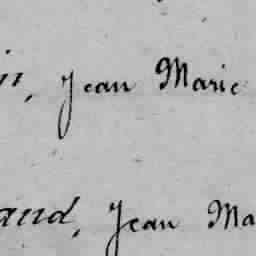 in, Jean Marie
and, Jean Ma